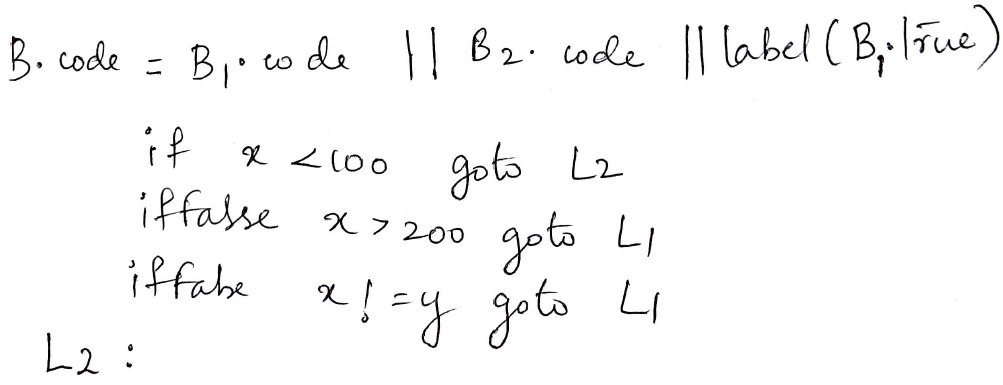 B. code = B₁. code || B₂. code || label (B₁. true)
if x <100 goto L2
iffalse x > 200 goto L1
iffalse x != y goto L1
L2 :